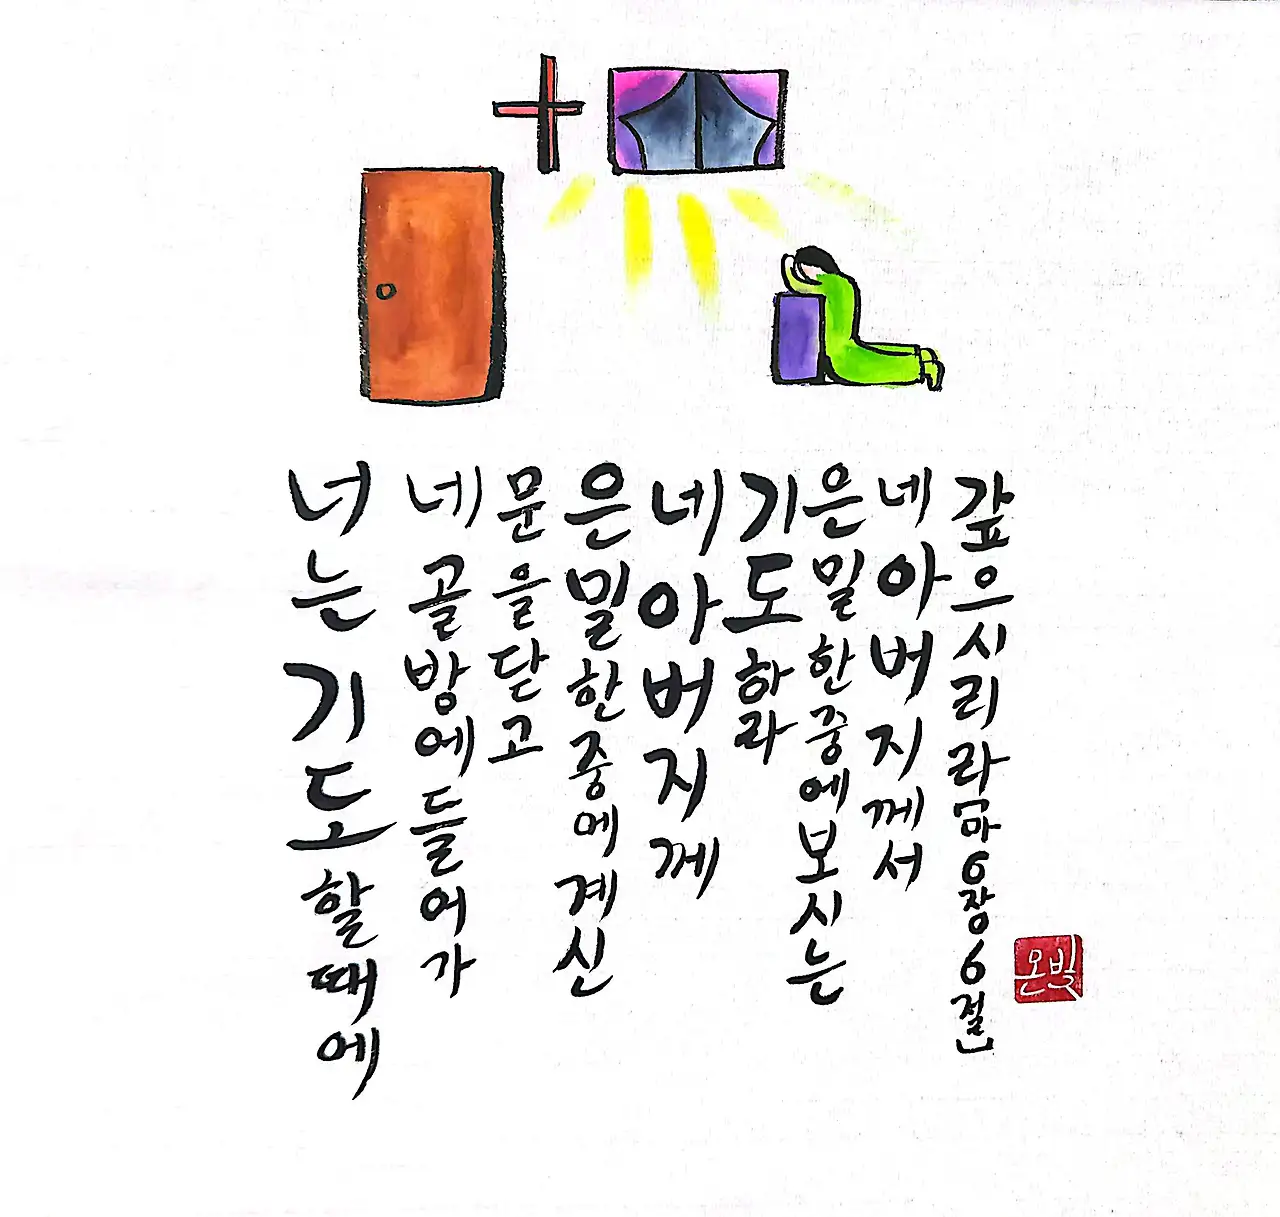 너는 기도할 때에
네 골방에 들어가
문을 닫고
은밀한 중에 계신
네 아버지께
기도하라
은밀한 중에 보시는
네 아버지께서
갚으시리라 [마6장6절]
온빛